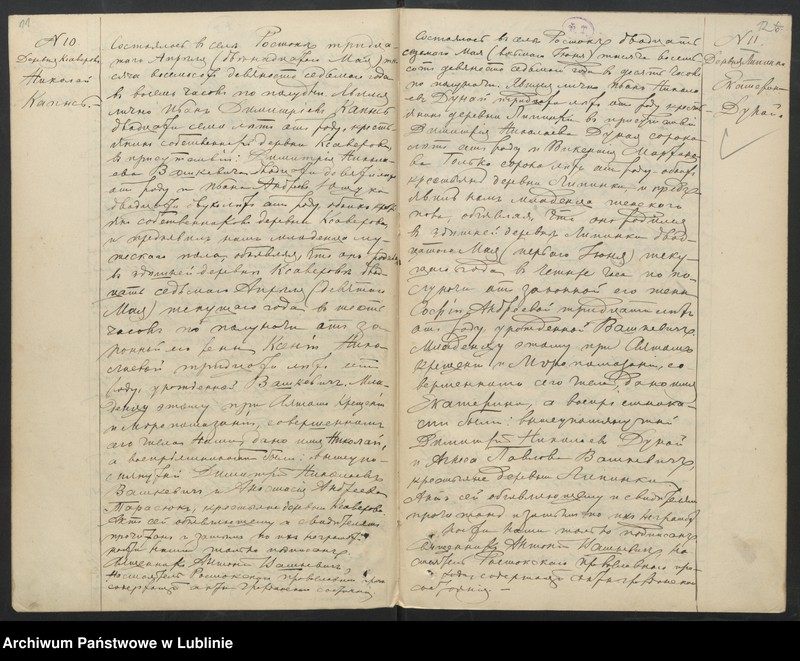 11
N 10
Деревня Ксаверовъ
Николай
Каннъ.
Состоялось въ селѣ Ростокѣ тридца-
таго Апрѣля (двѣнадцатаго Мая) ты-
сяча восемьсотъ девяносто седьмаго года
въ восемь часовъ по полудни. Явился
лично Иванъ Димитріевъ
двадцати семи лѣтъ отъ роду, кресть-
янинъ собственникъ деревни Ксаверовъ
въ присутствіи: Димитрія Никола-
ева Вашкевича двадцати девяти лѣтъ
отъ роду и Ивана Андреева
двадцати двухъ лѣтъ отъ роду обоихъ крес-
янъ собственниковъ деревни Ксаверовъ
и предъявилъ намъ младенца му-
жескаго пола, объявляя, что онъ родился
въ здѣшней деревни Ксаверовъ двад-
цать седьмаго Апрѣля (девятаго
Мая) текущаго года въ шесть
часовъ по полуночи отъ за-
конной его жены Ксеніи Нико-
лаевой тридцати лѣтъ отъ
роду, урожденной Вашкевичъ. Мла-
денцу этому при Святомъ Крещеніи
и Мѵропомазаніи, совершенномъ
сего числа Нами дано имя Николай,
а воспріемниками были: вышеупо-
мянутый Димитрій Николаевъ
Вашкевичъ и Анастасія Андреева
Тарасюкъ, крестьяне деревни Ксаверовъ
Актъ сей объявляющему и свидѣтелямъ
прочитанъ и за тѣмъ по ихъ неграмот-
ности Нами только подписанъ.
Священникъ Антоній Вашкевичъ,
Настоятель Ростокскаго православнаго прихода
содержащій акты гражданскаго состоянія
12
N 11
Деревня Липинки
Екатерина
Дунай.
Состоялось въ селѣ Ростокѣ двадцать
седьмаго Мая (восьмаго Іюня) тысяча восемь-
сотъ девяносто седьмаго года въ десять часовъ
по полуночи. Явился лично Иванъ Никола-
евъ Дунай тридцати лѣтъ отъ роду кресть-
янинъ деревни Липинки въ присутствіи
Димитрія Николаева Дуная сорока
лѣтъ отъ роду и
сорока лѣтъ отъ роду обоихъ
крестьянъ деревни Липинки, и предъ-
явилъ намъ младенца женскаго
пола, объявляя, что оно родилось
въ здѣшней деревнѣ Липинки двад-
цатаго Мая (перваго Іюня) теку-
щаго года въ четыре часа по по-
луночи отъ законной его жены
Софіи Андреевой тридцати лѣтъ
отъ роду, урожденной Вашкевичъ.
Младенцу этому при Святомъ
Крещеніи и Мѵропомазаніи, со-
вершенномъ сего числа, дано имя
Екатерина, а воспріемника-
ми были: вышеупомянутый
Димитрій Николаевъ Дунай
и Агафія Павлова Вашкевичъ,
крестьяне деревни Липинки.
Актъ сей объявляющему и свидѣтелямъ
прочитанъ и за тѣмъ по ихъ неграмот-
ности Нами только подписанъ.
Священникъ Антоній Вашкевичъ На-
стоятель Ростокскаго православнаго при-
хода, содержащій акты гражданскаго
состоянія.
Archiwum Państwowe w Lublinie